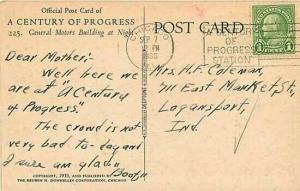 Official Post Card of
A CENTURY OF PROGRESS
225. General Motors Building at Night
Dear Mother:-
Well here we
are at "A Century
of Progress."
The crowd is not
very bad to-day and
I sure am glad.
COPYRIGHT, 1933, AND PUBLISHED BY
THE REUBEN H. DONNELLEY CORPORATION, CHICAGO
POST CARD
CHICAGO
SEP
PM
1933
A CENTURY
OF
PROGRESS
STATION
1
Mrs. H. F. Coleman,
711 East Market St,
Logansport,
Ind.